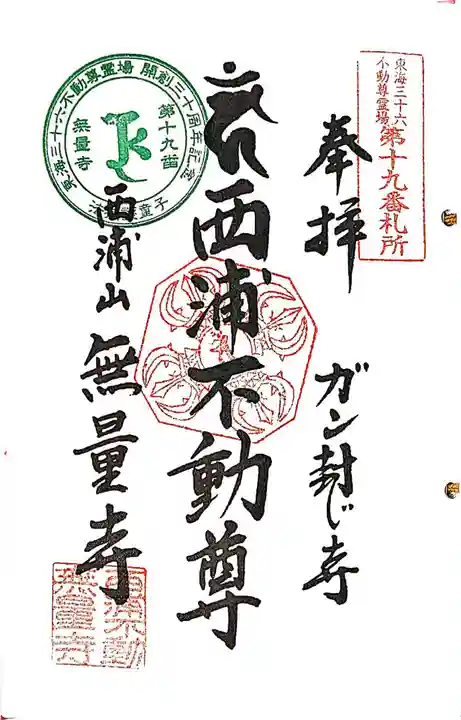 東海三十六
不動尊霊場
第十九番札所
奉拝
ガン封じ寺
西浦不動尊
東海三十六不動尊霊場 開創三十周年記念
第十九番
無量寺
西浦山 無量寺
西浦不動
無量寺